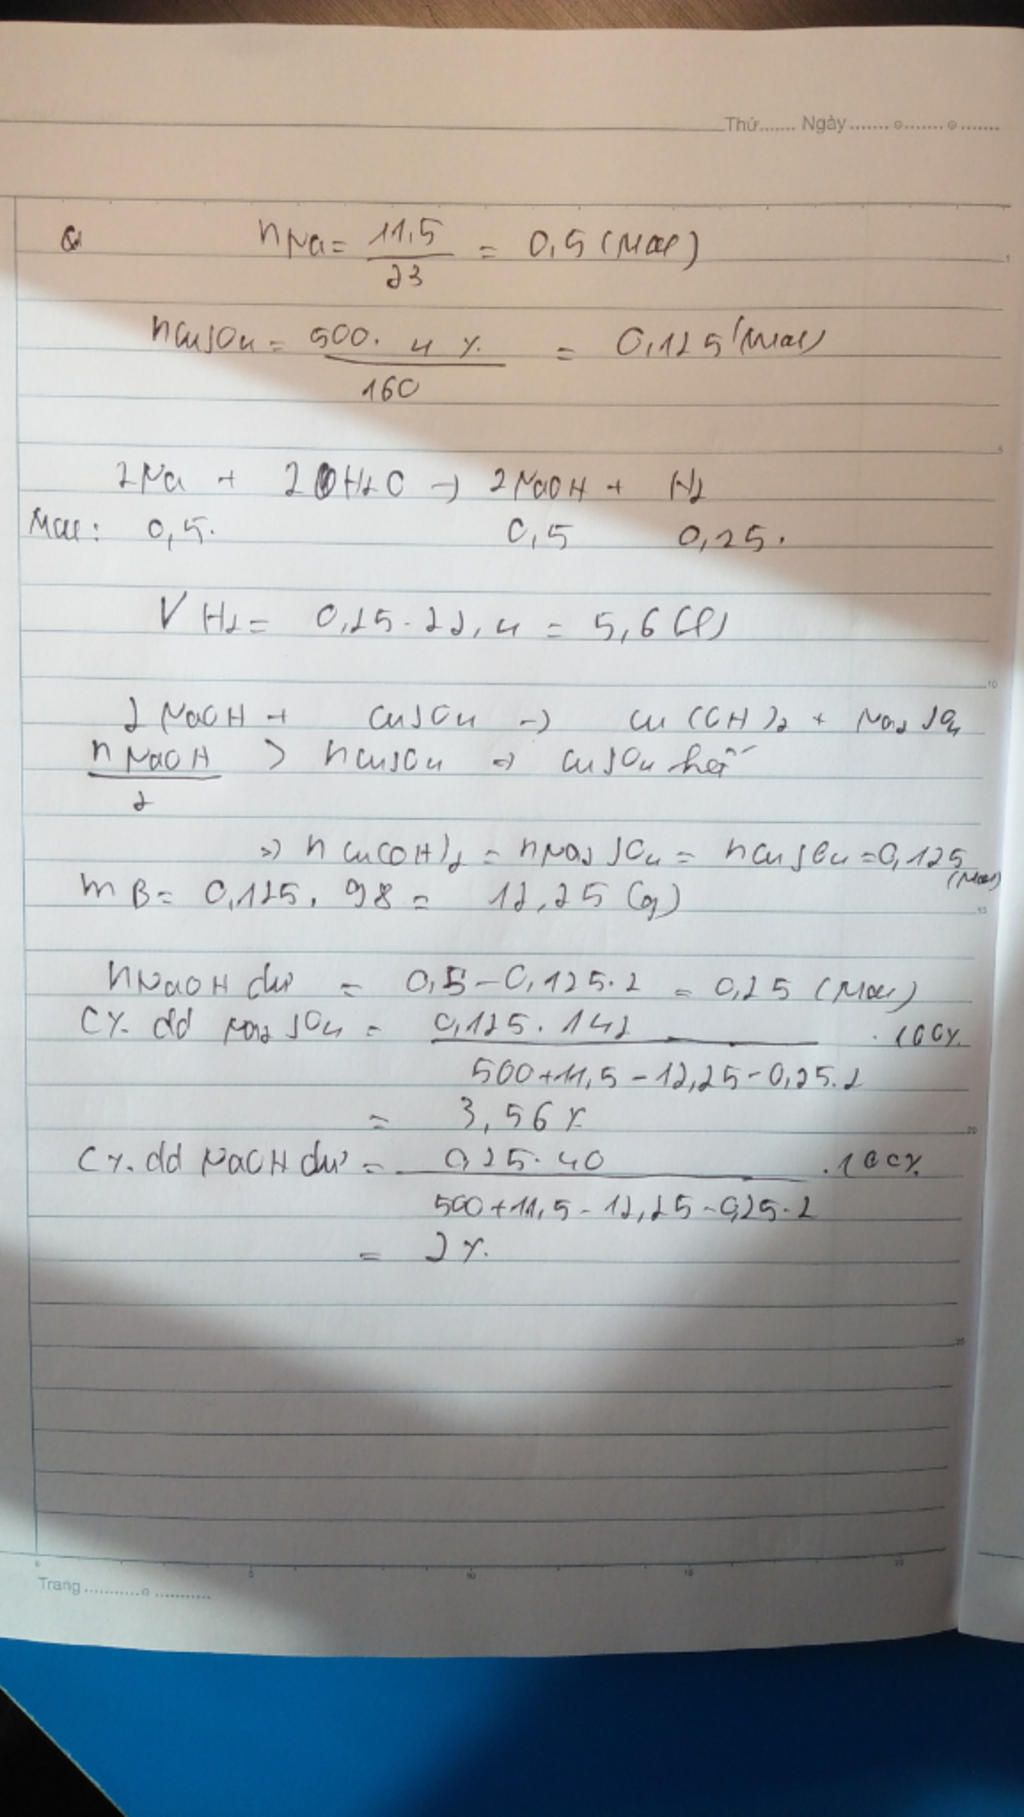 Thứ....... Ngày....... o....... o.......
a
nNa = 11,5 / 23 = 0,5 (Mol)
nCuSO4 = 500. 4 % / 160 = 0,125 (Mol)
2Na + 2H2O -> 2NaOH + H2
Mol: 0,5. 0,5 0,25.
V H2 = 0,25. 22,4 = 5,6 (l)
2NaOH + CuSO4 -> Cu(OH)2 + Na2SO4
nNaOH / 2 > nCuSO4 => CuSO4 hết
=> nCu(OH)2 = nNa2SO4 = nCuSO4 = 0,125 (Mol)
mB = 0,125. 98 = 12,25 (g)
nNaOH dư = 0,5 - 0,125.2 = 0,25 (Mol)
C%. dd Na2SO4 = 0,125. 142 / 500+11,5-12,25-0,25.2 . 100%
= 3,56 %
C%. dd NaOH dư = 0,25. 40 / 500+11,5-12,25-0,25.2 . 100%
= 2%.
Trang...........o...........